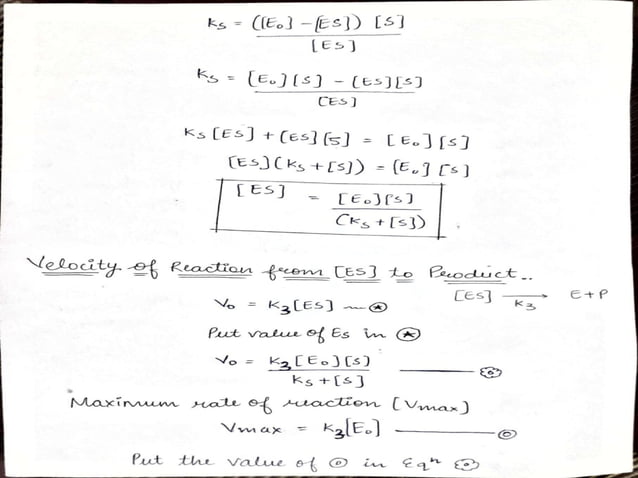 Ks = ([E₀] - [ES]) [S]
[ES]
Ks = [E₀] [S] - [ES][S]
[ES]
Ks [ES] + [ES] [S] = [E₀] [S]
[ES] (Ks + [S]) = [E₀] [S]
[ES] = [E₀][S]
(Ks + [S])
Velocity of Reaction from [ES] to Product..
V₀ = K₃[ES] — ⍟ [ES] ⟶ E+P
K₃
Put value of Es in ⍟
V₀ = K₃ [E₀] [S]
Ks + [S]
Maximum rate of reaction [Vmax)
Vmax = K₃[E₀] — ⊙
Put the value of ⊙ in Eqⁿ